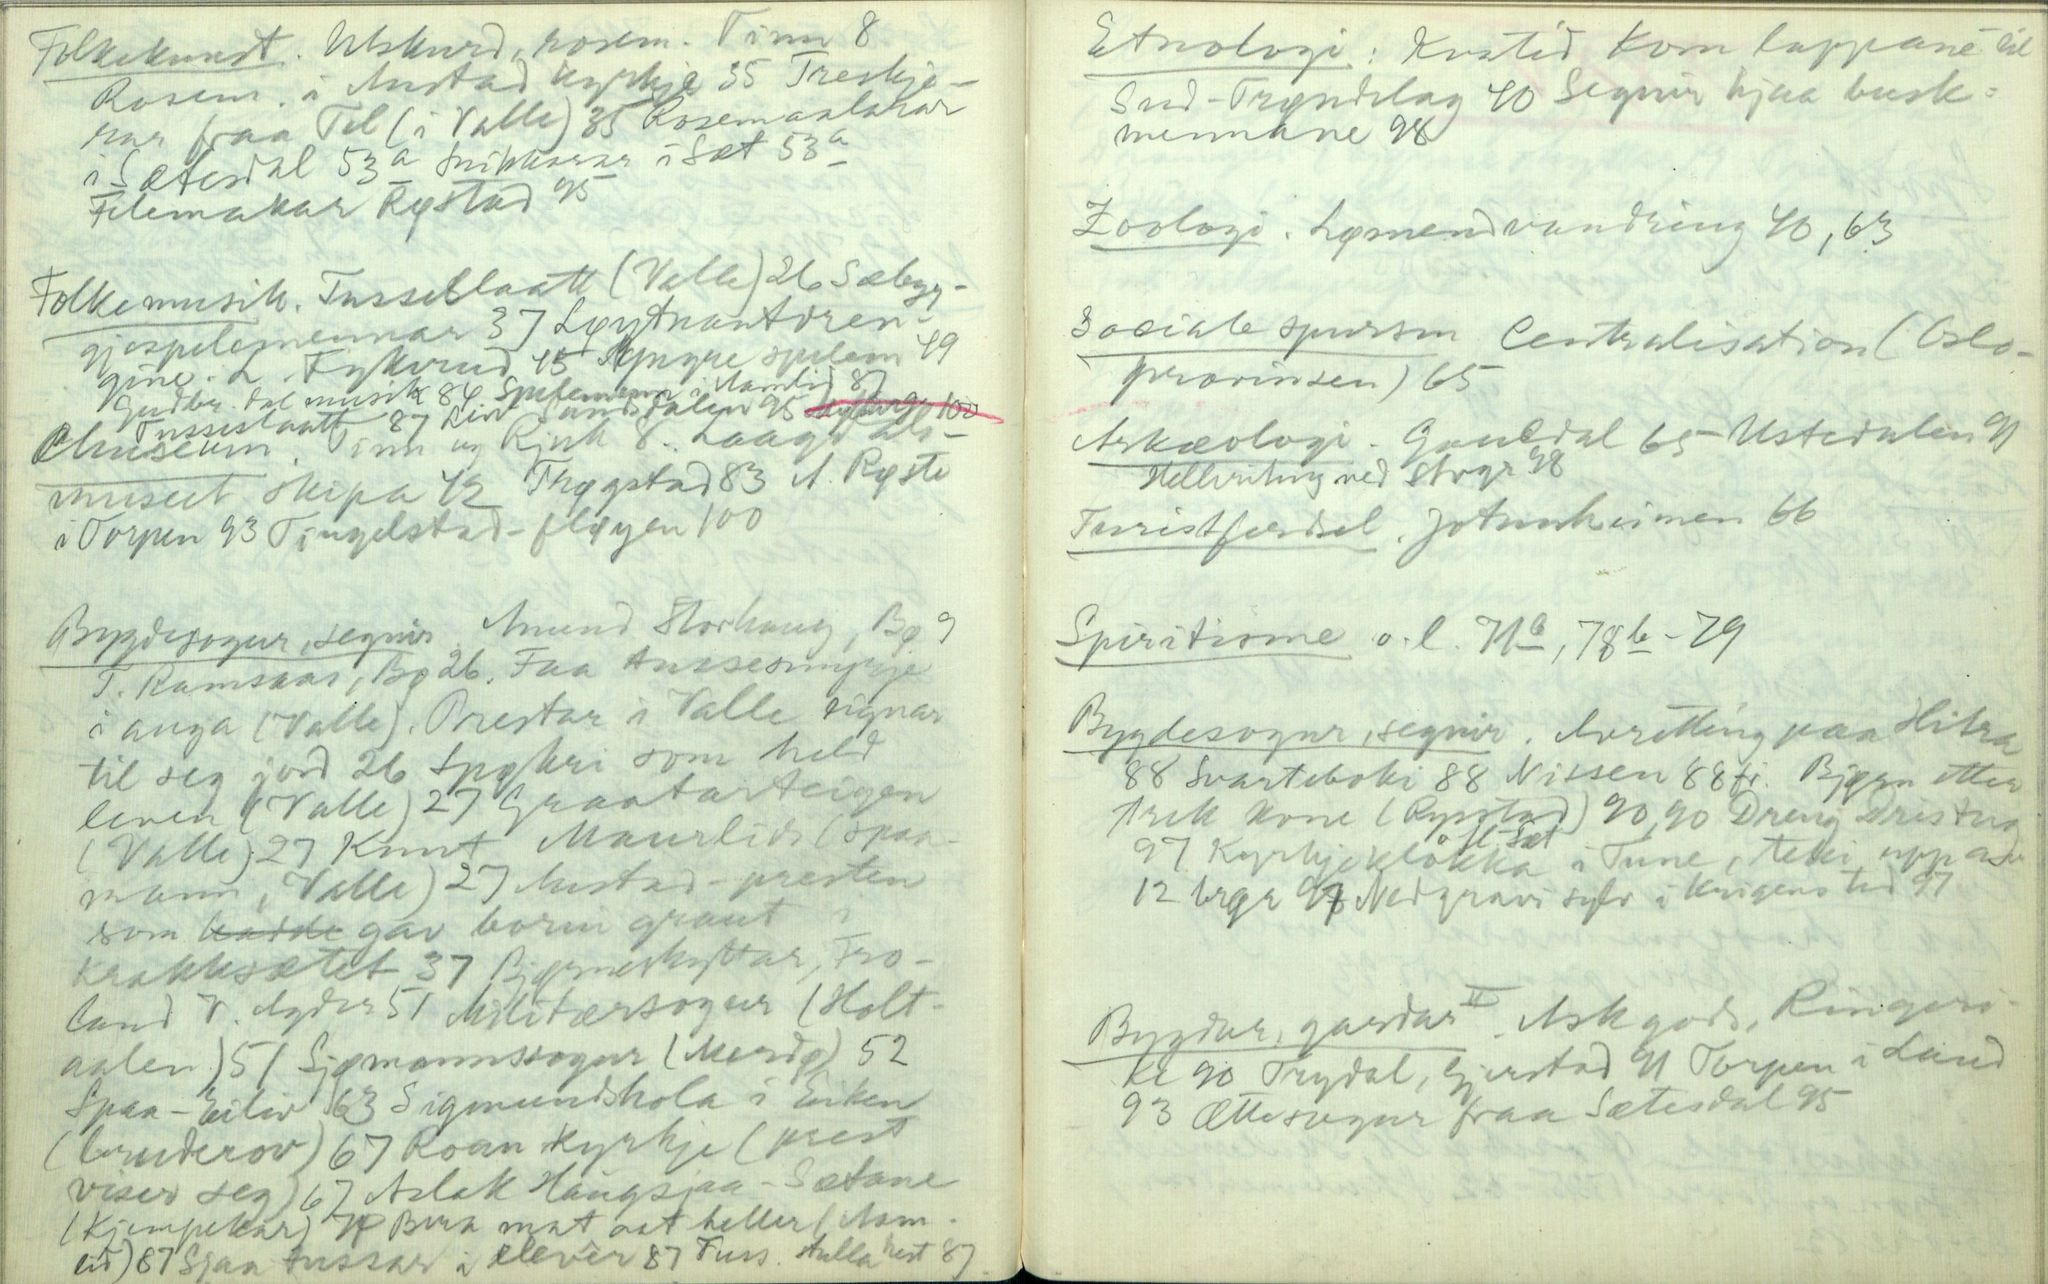 Folkekunst. Utskurd, rosem. Tinn 8
Rosem. i Austad kyrkje 35 Treskje-
rar fraa Tel (i Valle) 35 Rosemaalarar
i Sætesdal 53a Snikkarar i Sæt 53a
Felemakar Rystad 95
Folkemusik. Tusseslaatt (Valle) 26 Sæbyg-
gjespelemennar 37 Løytnantdren-
gine. L. Fykerud 45 Myngre spelem 49
Gudbr. dal musik 84 Spelemenn i Aamlid 87
Tusseslaatt 87 Liv Sandsdalen 95
Museum. Tinn og Rjuk 8. Laagdals-
museet skipa 42 Trøgstad 83 A. Røste
i Torpen 93 Tingelstad-fløyen 100
Bygdesogur, segnir. Amund Storhaug, Bø 9
T. Ramsaas, Bø 26. Faa tussesmyrje
i auga (Valle). Prestar i Valle signar
til seg jord 26 Spøkri som held
leven (Valle) 27 Graatarteigen
(Valle) 27 Knut Maurlid (spaa-
mann, Valle) 27 Austad-presten
som hadde gav borni graut i
krakksætet 37 Bjørneskyttar, Fro-
land V. Agder 51 Militærsogur (Holt-
aalen) 51 Sjømannssogur (Merdø) 52
Spaa-Eiliv 63 Sigmundshola i Eiken
(bruderov) 67 Roan kyrkje (prest
viser seg) 67 Aslak Haugsjaa-Sætane
(Kjempekar) Bera mat aat heller (Aam-
lid) 87 Sjaa tussar i klever 87 Tuss. hest 87
Etnologi: Kvatid kom lappane til
Sud-Trøndelag 40 Segnir hjaa busk-
mennane 98
Zoologi. Lømendvandring 40, 63
Sociale spursm Centralisation (Oslo-
provinsen) 65
Arkæologi. Gauldal 65 Ustedalen 91
Helleristing ved 98
Turistferdsel. Jotunheimen 66
Spiritisme o.l. 71b, 78b-79
Bygdesogur, segnir. Avretting paa Hitra
88 Svarteboki 88 Nissen 88 fr. Bjørn etter
frek kone (Rysstad) 90, 90 Dreng Dristug
97 Kyrkjeklokka i Tune, teki upp
12 97 Nedgravi sylv i krigens tid 97
Bygdar, gardar II. Ask gods, Ringeri-
ke 90 Trydal, Gjerstad 91 Torpen i Land
93 Ættesogur fraa Sætesdal 95